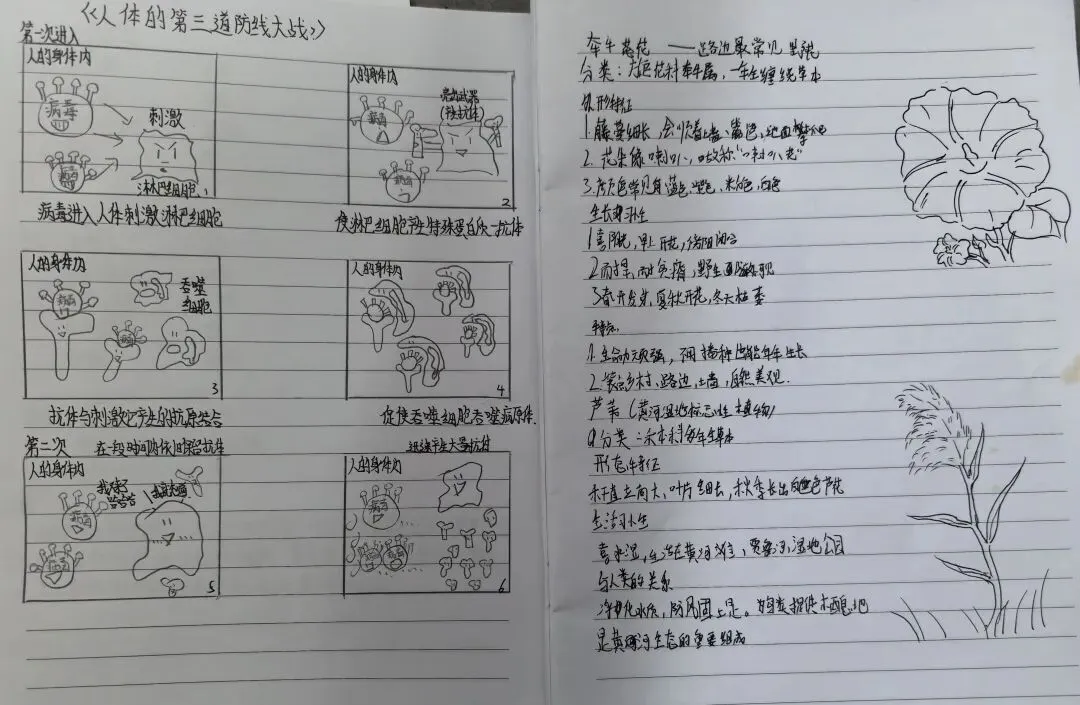 《人体的第三道防线大战》
第一次进入
人的身体内
病毒
刺激
病毒
淋巴细胞
病毒进入人体刺激淋巴细胞
人的身体内
病毒
亮出武器
(释放抗体)
病毒
2
使淋巴细胞产生特殊蛋白质-抗体
人的身体内
病毒
吞噬
细胞
3
抗体与刺激它产生的抗原结合
人的身体内
4
促使吞噬细胞吞噬病原体.
第二次
在一段时间内依旧保留抗体
人的身体内
哈哈哈
病毒
病毒
5
迅速产生大量抗体
人的身体内
病毒
6
牵牛花 ——路边最常见野花
分类:旋花科牵牛属,一年生缠绕草本
形特征
1.藤蔓细长,会顺着墙、篱笆,地面攀爬
2.花朵像喇叭,故称"喇叭花"
3.花色常见有蓝色、紫色,粉色,白色
生长习性
1.喜阳光,早上开花,
2.耐旱,耐贫瘠,野生
3.春开发芽,夏秋开花,冬天枯萎
特点
1.生命力顽强,不用播种也能年年生长
2.装点乡村、路边,土墙,自然美观.
芦苇(黄河湿地标志性植物)
分类:禾本科多年生草本
形态特征
秆直立高大、叶片细长,秋季长出白色芦花
生活习性
喜水湿,生活在黄河滩、贾鲁河,湿地公园
与人类的关系
净化水质,防风固土,是
是黄河生态的重要组成